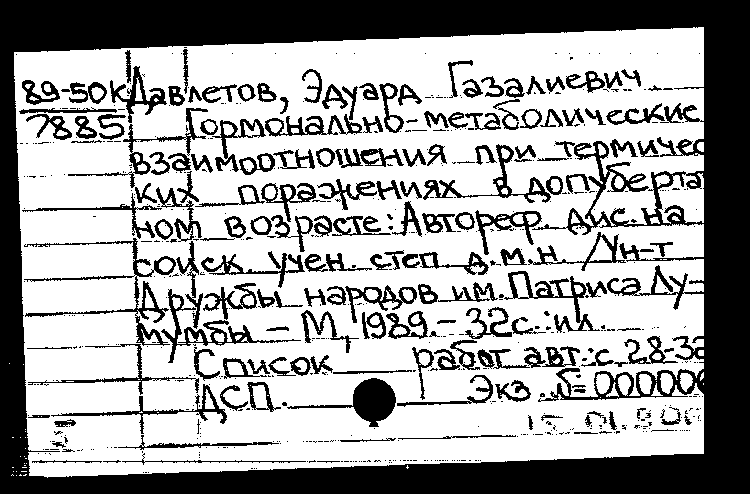 89-50К Давлетов, Эдуард Газалиевич
7885 Гормонально-метаболические
взаимоотношения при термичес
ких поражениях в допуберта
ном возрасте: Автореф. дис. на
соиск. учен. степ. д.м.н. /Ун-т
Дружбы народов им. Патриса Лу-
мумбы - М, 1989.- 32с.:ил.
Список работ авт.: с. 28-32
ДСП. Экз. №= 000006